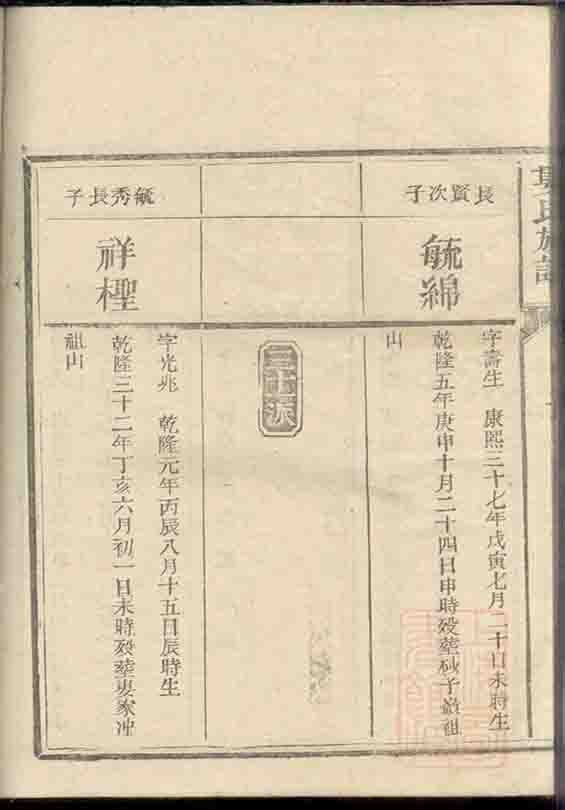 氏族譜
長賢次子
毓綿
字壽生 康熙三十七年戊寅七月二十日未時生
乾隆五年庚申十月二十四日申時歿塟砂子嶺祖
山
三十派
毓秀長子
祥檉
字光兆 乾隆元年丙辰八月十五日辰時生
乾隆三十二年丁亥六月初一日未時歿塟婁家冲
祖山